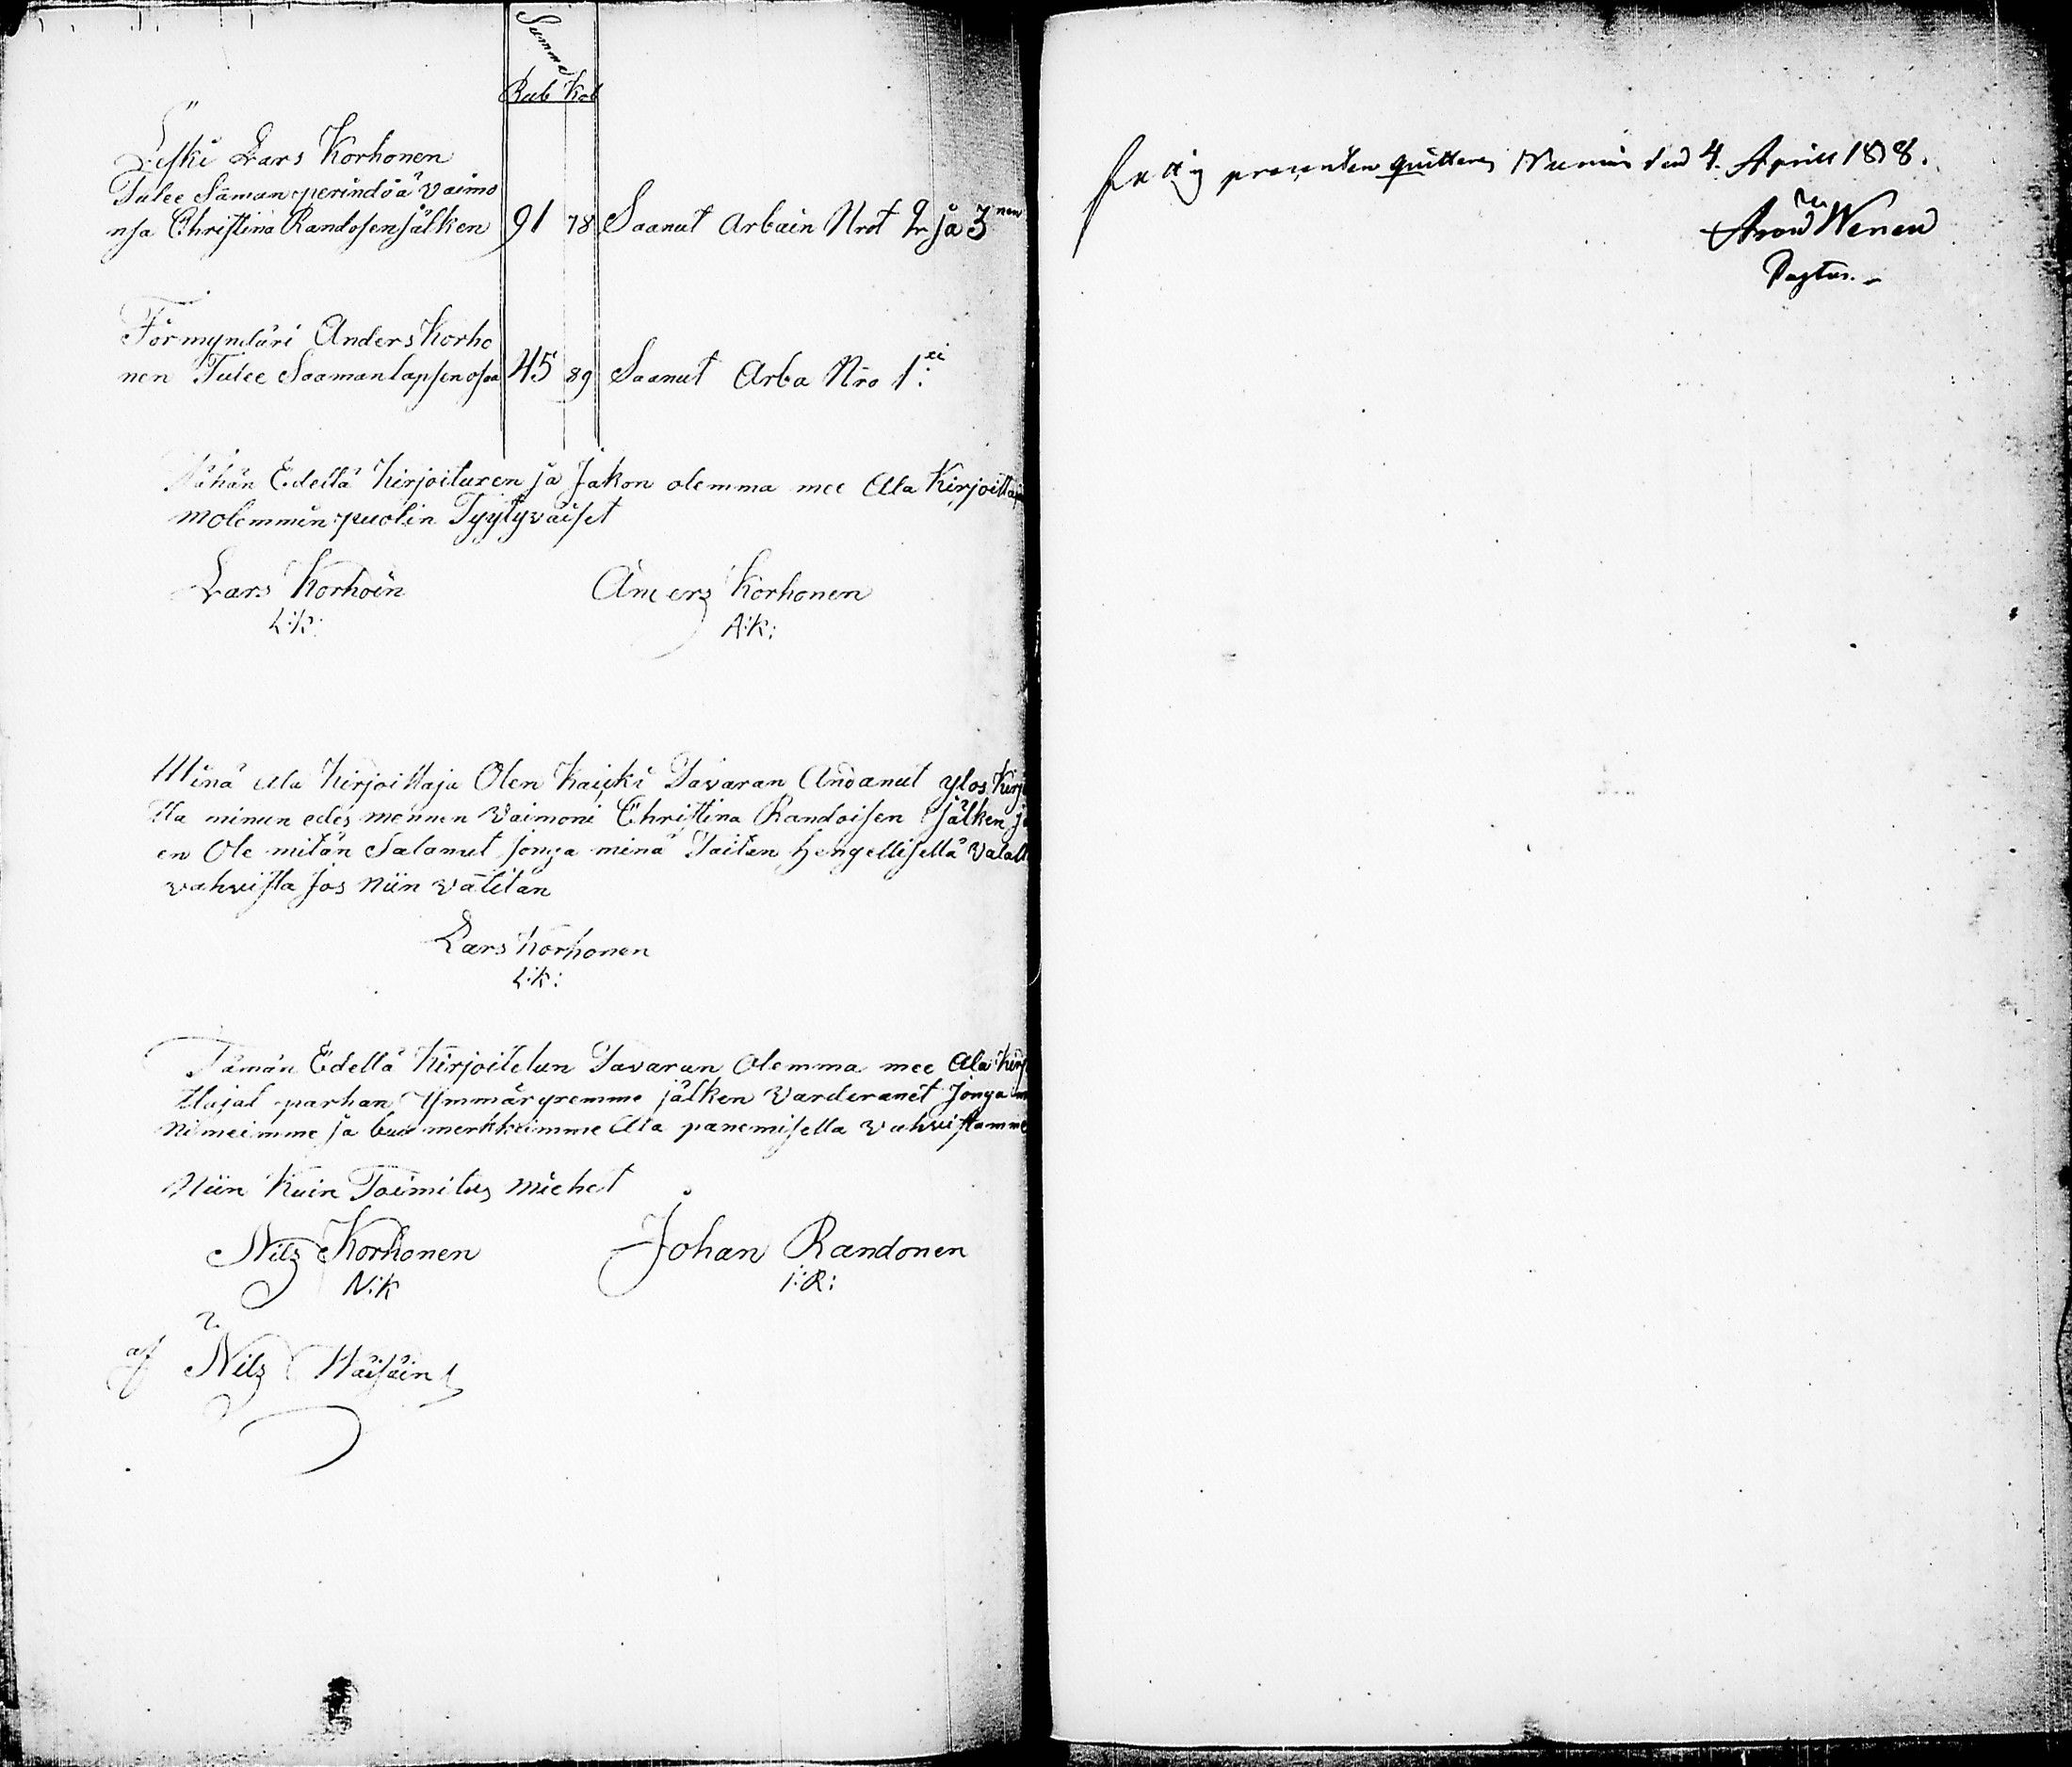 Summa
Rub Kob
Leski Lars Korhonen
Tulee Saman perindöä Vaimo
nsa Christina Randosen jälken 91 78 Saanut Arbain Nrot 2 ja 3 nen
Förmyndäri Anders Korho
nen Tulee Saaman lapsen osaa 45 89 Saanut Arba Nro 1:
Tähän Edellä Kirjoituxen ja Jakon olemma mee Ala Kirjoitta
molemmin puolin Tyytyväiset
Lars Korhoin Anders Korhonen
L:K: A:K:
Minä Ala Kirjoittaja Olen Kaicki Tavaran Andanut ylos Kirj
tta minun edes mennen Vaimoni Christina Randoisen jälken
en Ole mitän Salanut Jonga minä Taitan Hengellisellä Valall
vahvista Jos Niin vätitän
Lars Korhonen
L:K:
Tämän Edellä Kirjoitetun Tavaran Olemma mee Ala Kirj
ttajat parhan Ymmäryxemme jälken Varderanet Jonga
Nimeimme ja buu merkkeimme Ala panemisella Vahvistamme
Niin Kuin Toimitus miehet
Nils Korhonen Johan Randonen
N:K I:R:
af Nils Häisäin
fattig procenten quitteras den 4. April 1818.
Aron Wenen